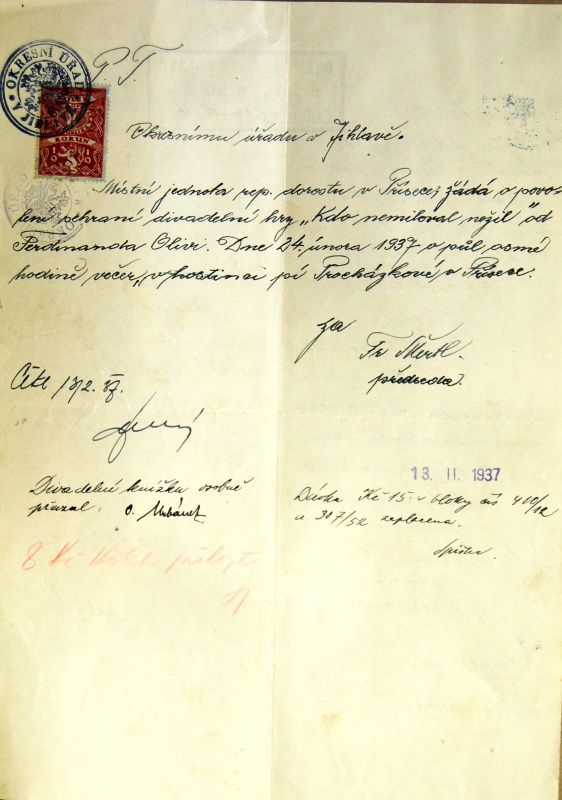 OKRESNÍ ÚŘAD
P. T.
KORUN
Okresnímu úřadu v Jihlavě.
Místní jednota rep. dorostu v Přísece žádá o povo-
lení sehraní divadelní hry "Kdo nemiloval nežil" od
Ferdinanda Olivi. Dne 24. února 1937 o půl osmé
hodině večer, v hostinci pí Procházkové v Přísece.
za
Fr
předseda.
Četl 13/2. 37.
13. II. 1937
Divadelní knížku osobně
Dávka Kč 15.- bloky čís
a 307/52 zaplacena.
8 Kč kolek